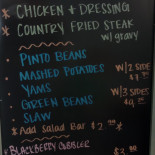 * CHICKEN + DRESSING
* COUNTRY FRIED STEAK
w/ gravy
- PINTO BEANS
- MASHED POTATOES w/2 SIDES
- YAMS
- GREEN BEANS w/3 SIDES
- SLAW
* Add Salad Bar $2
* BLACKBERRY COBBLER